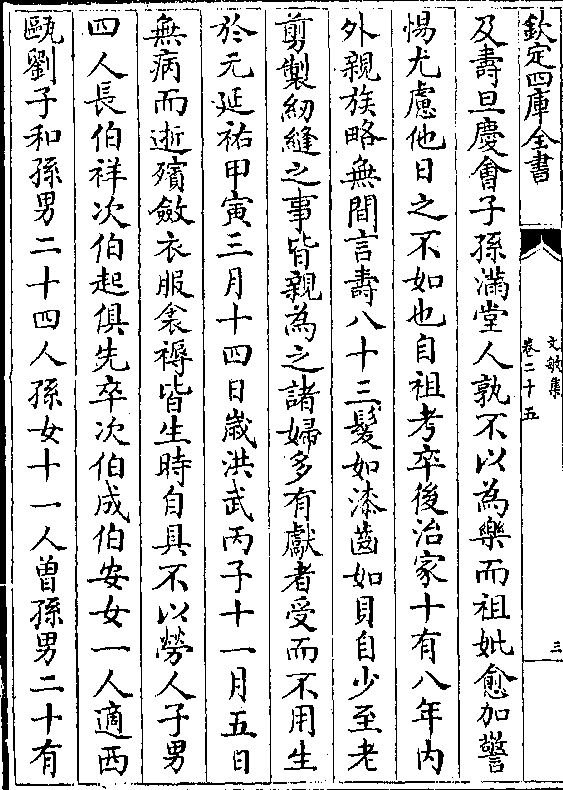 欽定四庫全書
文敏集
卷二十五
三
及壽旦慶會子孫滿堂人孰不以為樂而祖妣愈加警
惕尤慮他日之不如也自祖考卒後治家十有八年内
外親族略無間言壽八十三髮如漆齒如貝自少至老
剪製紉縫之事皆親為之諸婦多有獻者受而不用生
於元延祐甲寅三月十四日歲洪武丙子十一月五日
無病而逝殯斂衣服衾褥皆生時自具不以勞人子男
四人長伯祥次伯起俱先卒次伯成伯安女一人適西
甌劉子和孫男二十四人孫女十一人曾孫男二十有